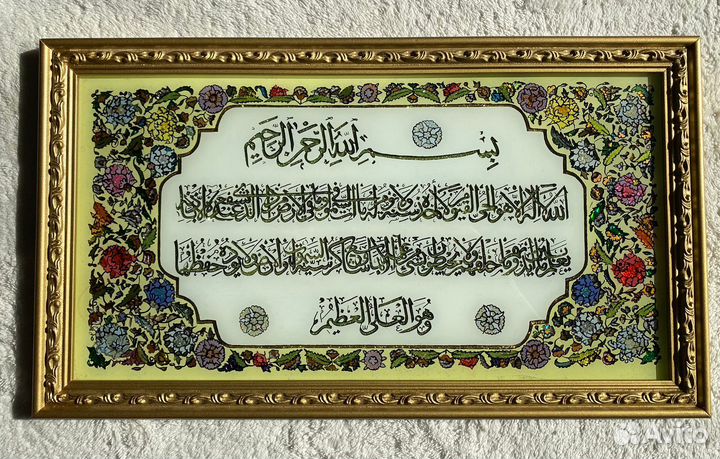 بِسْمِ اللهِ الرَّحْمٰنِ الرَّحِيْمِ
اللهُ لا إله إلا هو الحي القيوم لا تأخذه سنة ولا نوم له ما في السموات وما في الأرض من ذا الذي يشفع عنده إلا بإذنه
يعلم ما بين أيديهم وما خلفهم ولا يحيطون بشيء من علمه إلا بما شاء وسع كرسيه السموات والأرض ولا يؤده حفظهما
وَهُوَ الْعَلِيُّ الْعَظِيْمُ
Avito